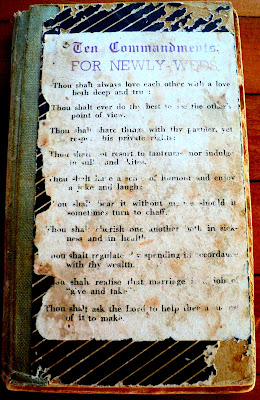 Ten Commandments.
FOR NEWLY-WEDS
Thou shalt always love each other with a love
both deep and true.
Thou shalt ever do thy best to see the other's
point of view.
Thou shalt share things with thy partner, yet
respect his private rights;
Thou shalt not resort to tantrums nor indulge
in sulks and
Thou shalt have a sense of humour and enjoy
a joke and laugh;
Thou shalt bear it without malice should it
sometimes turn to chaff.
Thou shalt cherish one another both in sick-
ness and in health
Thou shalt regulate thy spending in accordance
with thy wealth.
Thou shalt realise that marriage is a joint
"give and take"
Thou shalt ask the Lord to help thee a success
of it to make.